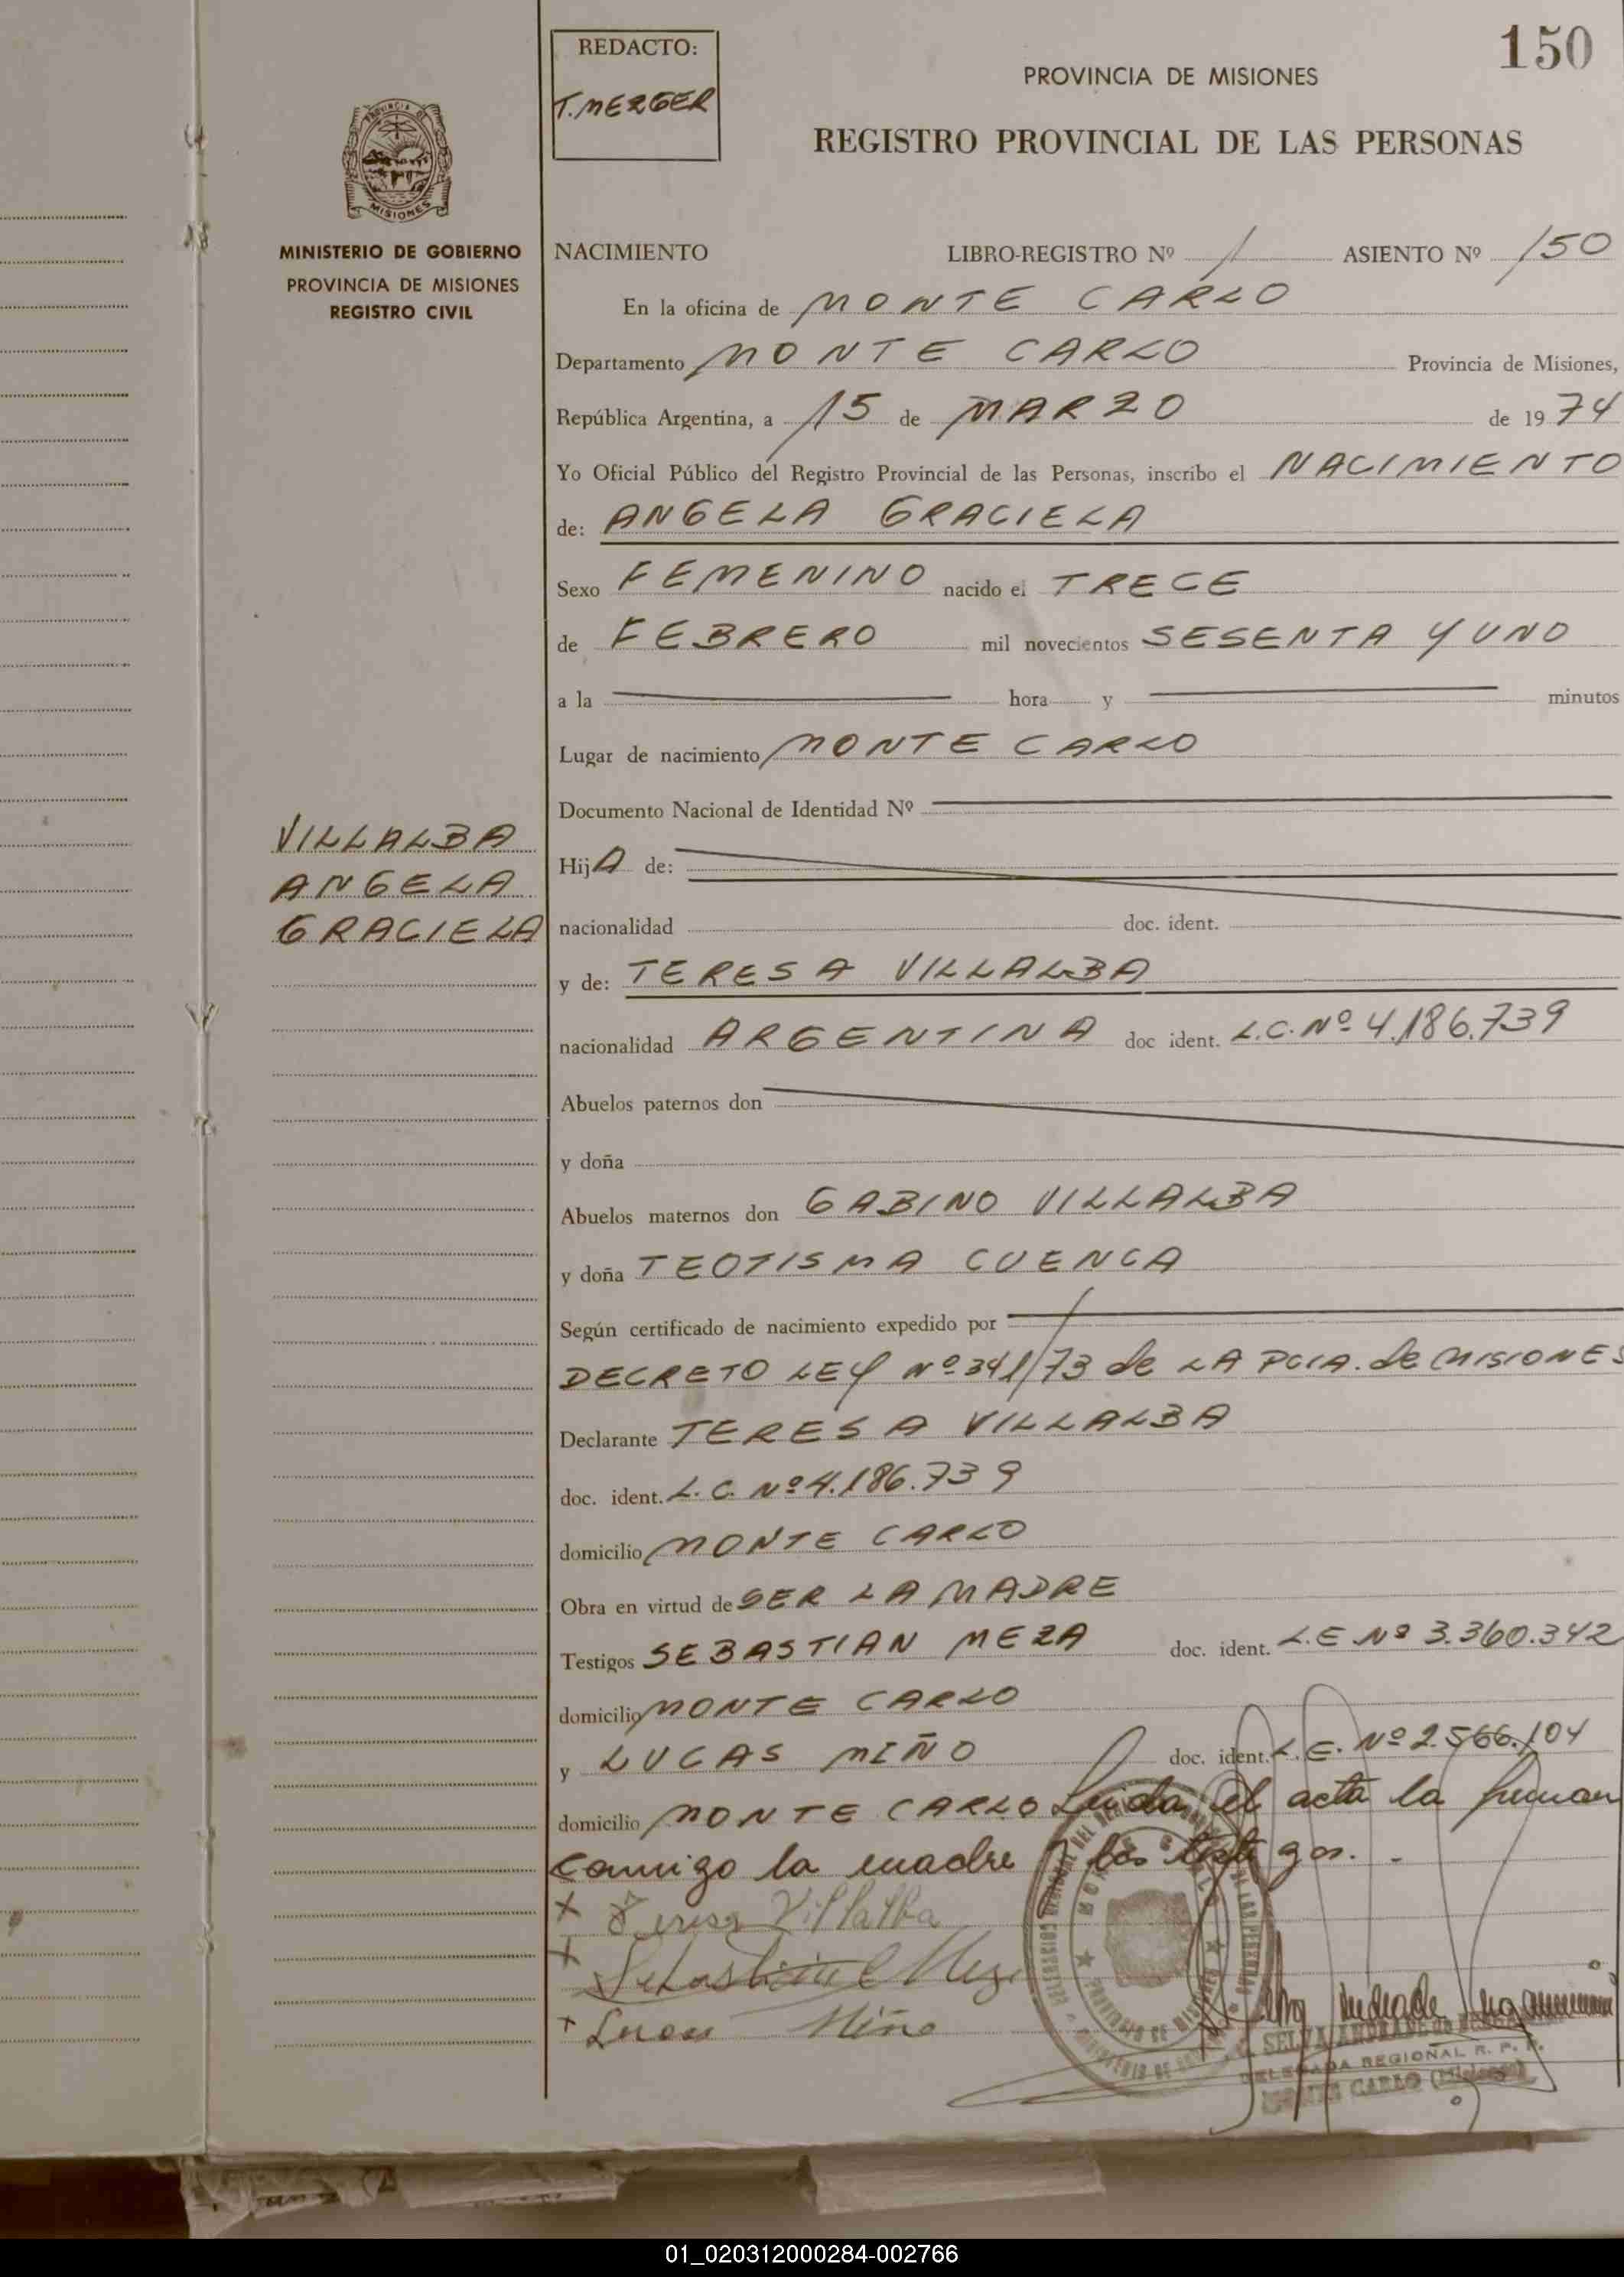 150
REDACTO:
T. MERGER
PROVINCIA DE MISIONES
REGISTRO PROVINCIAL DE LAS PERSONAS
PROVINCIA DE
MISIONES
MINISTERIO DE GOBIERNO
PROVINCIA DE MISIONES
REGISTRO CIVIL
NACIMIENTO LIBRO-REGISTRO Nº 1 ASIENTO Nº 150
En la oficina de MONTE CARLO
Departamento MONTE CARLO Provincia de Misiones,
República Argentina, a 15 de MARZO de 1974
Yo Oficial Público del Registro Provincial de las Personas, inscribo el NACIMIENTO
de: ANGELA GRACIELA
Sexo FEMENINO nacido el TRECE
de FEBRERO mil novecientos SESENTA Y UNO
a la hora y minutos
Lugar de nacimiento MONTE CARLO
Documento Nacional de Identidad Nº
VILLALBA
ANGELA
GRACIELA
HijA de:
nacionalidad doc. ident.
y de: TERESA VILLALBA
nacionalidad ARGENTINA doc ident. L.C. Nº 4.186.739
Abuelos paternos don
y doña
Abuelos maternos don GABINO VILLALBA
y doña TEOTISMA CUENCA
Según certificado de nacimiento expedido por
DECRETO LEY Nº 341/73 de LA PCIA. de MISIONES
Declarante TERESA VILLALBA
doc. ident. L.C. Nº 4.186.739
domicilio MONTE CARLO
Obra en virtud de SER LA MADRE
Testigos SEBASTIAN MEZA doc. ident. L.E Nº 3.360.342
domicilio MONTE CARLO
y LUCAS MIÑO doc. ident. L.E. Nº 2.566.104
domicilio MONTE CARLO Leida el acta la firman
conmigo la madre y los testigos.
x Teresa Villalba
x Sebastian Meza
+ Lucas Miño
SELVA ANDRADE de
DELEGADA REGIONAL R. P. P.
MONTE CARLO (Misiones)
01_020312000284-002766